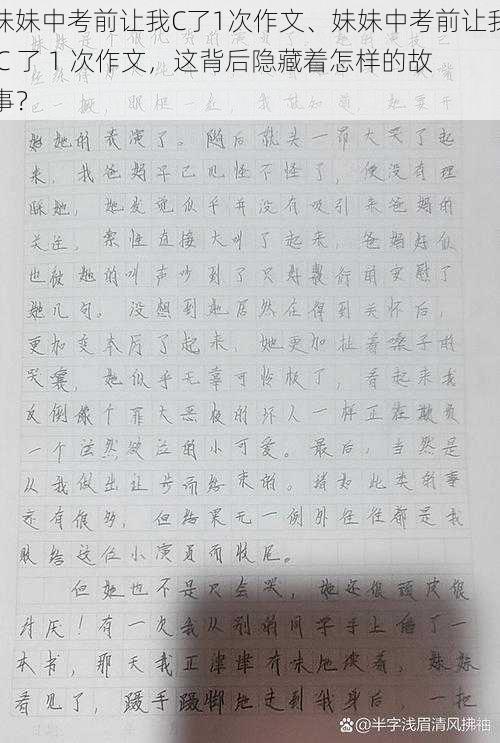 妹妹中考前让我C了1次作文、妹妹中考前让我
C了1次作文，这背后隐藏着怎样的故
事？
好她的表演了。随后就头一昂大哭了起
来，我爸妈早已见怪不怪了，便没有理
睬她，她发觉似乎并没有吸引来爸妈的
关注，索性直接大叫了起来，爸妈好似
也被她的叫声吵到了只好敷衍的安慰了
她几句。没想到她居然在得到关怀后，
更加变本厉了起来，她更加扯着嗓子的
哭嚷，她似乎无辜可怜极了，看起来我
反倒像个罪大恶极的坏人一样正在欺负
一个泫然欲泣的小可爱。最后，当然是
从我做出让步而结束的。诸如此类的事
还有很多，但结果无一例外往往都是我
服给这位小演员而收尾。
但她也不是只会哭，她还很顽皮很
讨厌！有一次我从别的同学手上借了一
本书，那天我正津津有味地读着，妹妹
看见了，蹑手蹑脚地走到我身后，一把
@半字浅眉清风拂袖